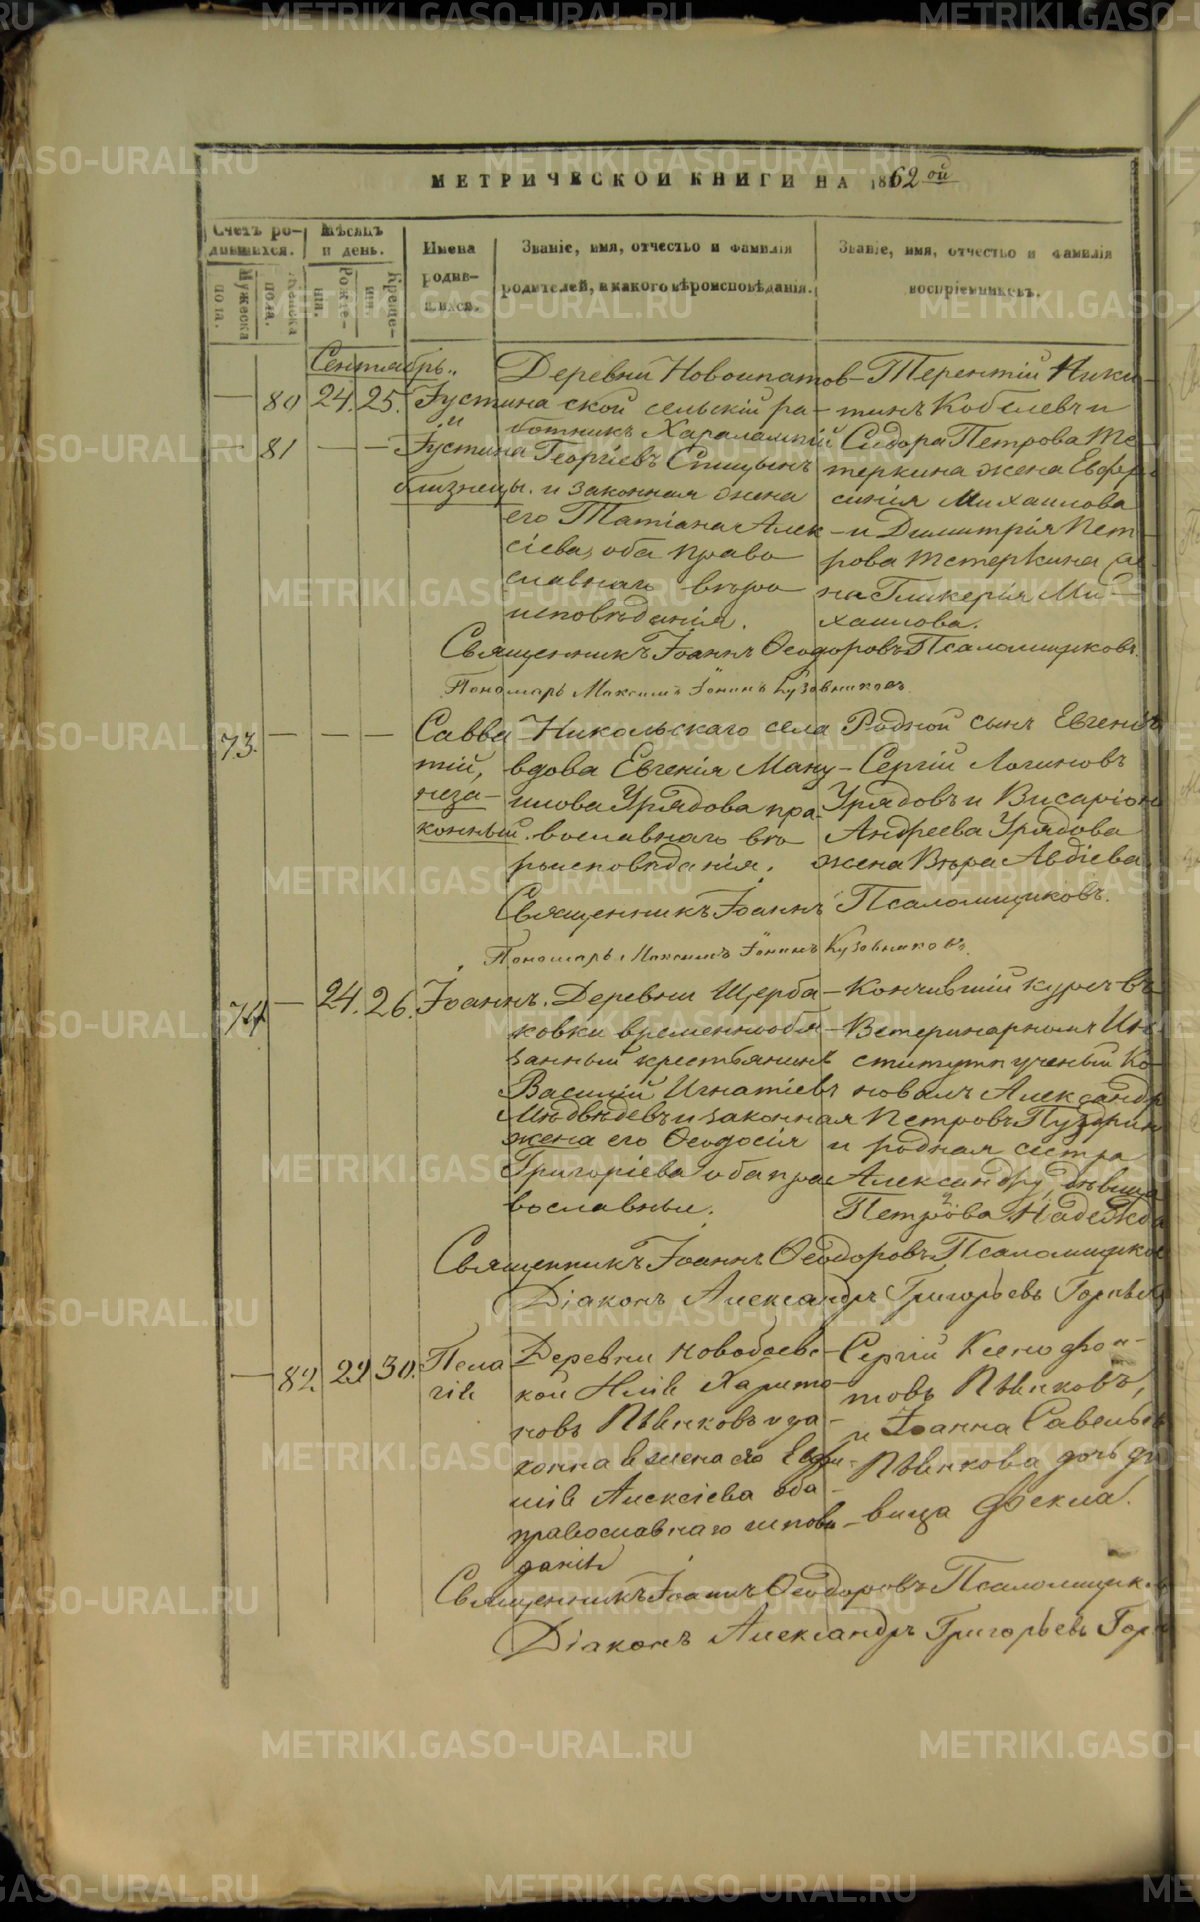 МЕТРИЧЕСКОЙ КНИГИ НА 1862ой
Счетъ родившихся.
Мѣсяцъ и день.
Имена родившихся.
Званіе, имя, отчество и фамилія родителей, и какого вѣроисповѣданія.
Званіе, имя, отчество и фамилія воспріемниковъ.
Мужеска пола.
Женска пола.
Рожденія.
Крещенія.
Сентябрь.
— 80 24. 25. Іустина
и
— 81 — — Іустина
близнецы.
Деревни Новоипатов-
ской сельскій ра-
ботникъ Харалампій
Георгіевъ Спицынъ
и законная жена
его Татіана Алек-
сіева, оба право
славнаго вѣро
исповѣданія.
Терентій Ники-
тинъ Кобелевъ и
Сидора Петрова Те-
теркина жена Евфро
синія Михаилова
и Димитрія Пет-
рова Тетеркина же
на Гликерія Ми-
хаилова.
Священникъ Іоаннъ Ѳеодоровъ Псаломщиковъ.
Пономарь Максимъ Іонинъ Кузовниковъ
73. — — — Савва
тій,
неза-
конный.
Никольскаго села
вдова Евгенія Ману-
илова Урядова пра-
вославнаго вѣ
роисповѣданія.
Родной сынъ Евгеніи
Сергій Логиновъ
Урядовъ и Висаріона
Андреева Урядова
жена Вѣра Авдіева
Священникъ Іоаннъ Псаломщиковъ.
Пономарь Максимъ Іонинъ Кузовниковъ.
74 — 24. 26. Іоаннъ.
Деревни Щерба-
ковки временнообя-
занный крестьянинъ
Василій Игнатіевъ
Мѣдвѣдевъ и законная
жена его Ѳеодосія
Григоріева оба пра
вославныи.
Кончившій курсъ въ
Ветеринарномъ Инс
ститутѣ ученый Ко-
новалъ Александръ
Петровъ Пуздрин
и родная сестра
Александру, дѣвица
Петрова Надежда
Священникъ Іоаннъ Ѳеодоровъ Псаломщиков
Діаконъ Александръ Григорьевъ
— 82. 29 30. Пела
гія
Деревни Новобоевс-
кой Илія Харито-
новъ Пьянковъ и за-
конная жена его Евфи-
мія Алексіева оба
православнаго исповѣ-
данія
Сергій Ксенофон-
товъ Пьянковъ,
и Іоанна Савельев
Пьянкова дочь дѣ
вица Фекла.
Священникъ Іоаннъ Ѳеодоровъ Псаломщик
Діаконъ Александръ Григорьевъ
METRIKI.GASO-URAL.RU